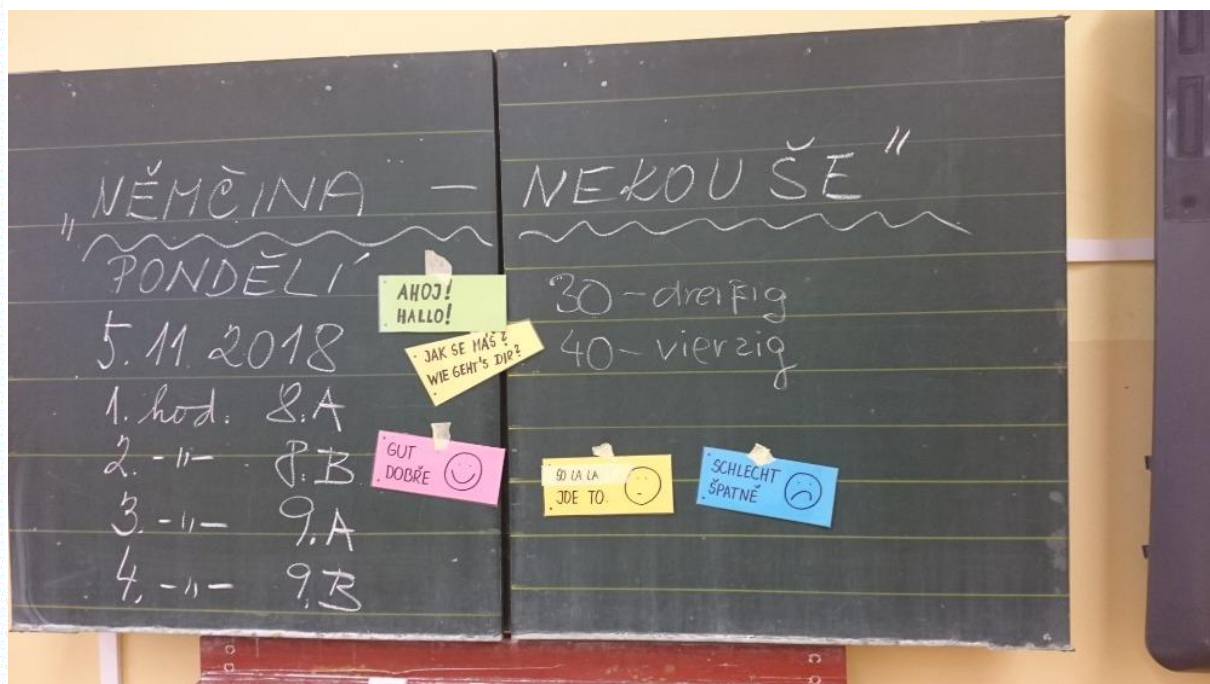 „NĚMČINA – NEKOUŠE"
PONDĚLÍ
5.11.2018
1. hod. 8.A
2. -"- 8.B
3. -"- 9.A
4. -"- 9.B
AHOJ!
HALLO!
JAK SE MÁŠ?
WIE GEHT'S DIR?
GUT
DOBŘE
30 – dreißig
40 – vierzig
SO LA LA
JDE TO.
SCHLECHT
ŠPATNĚ